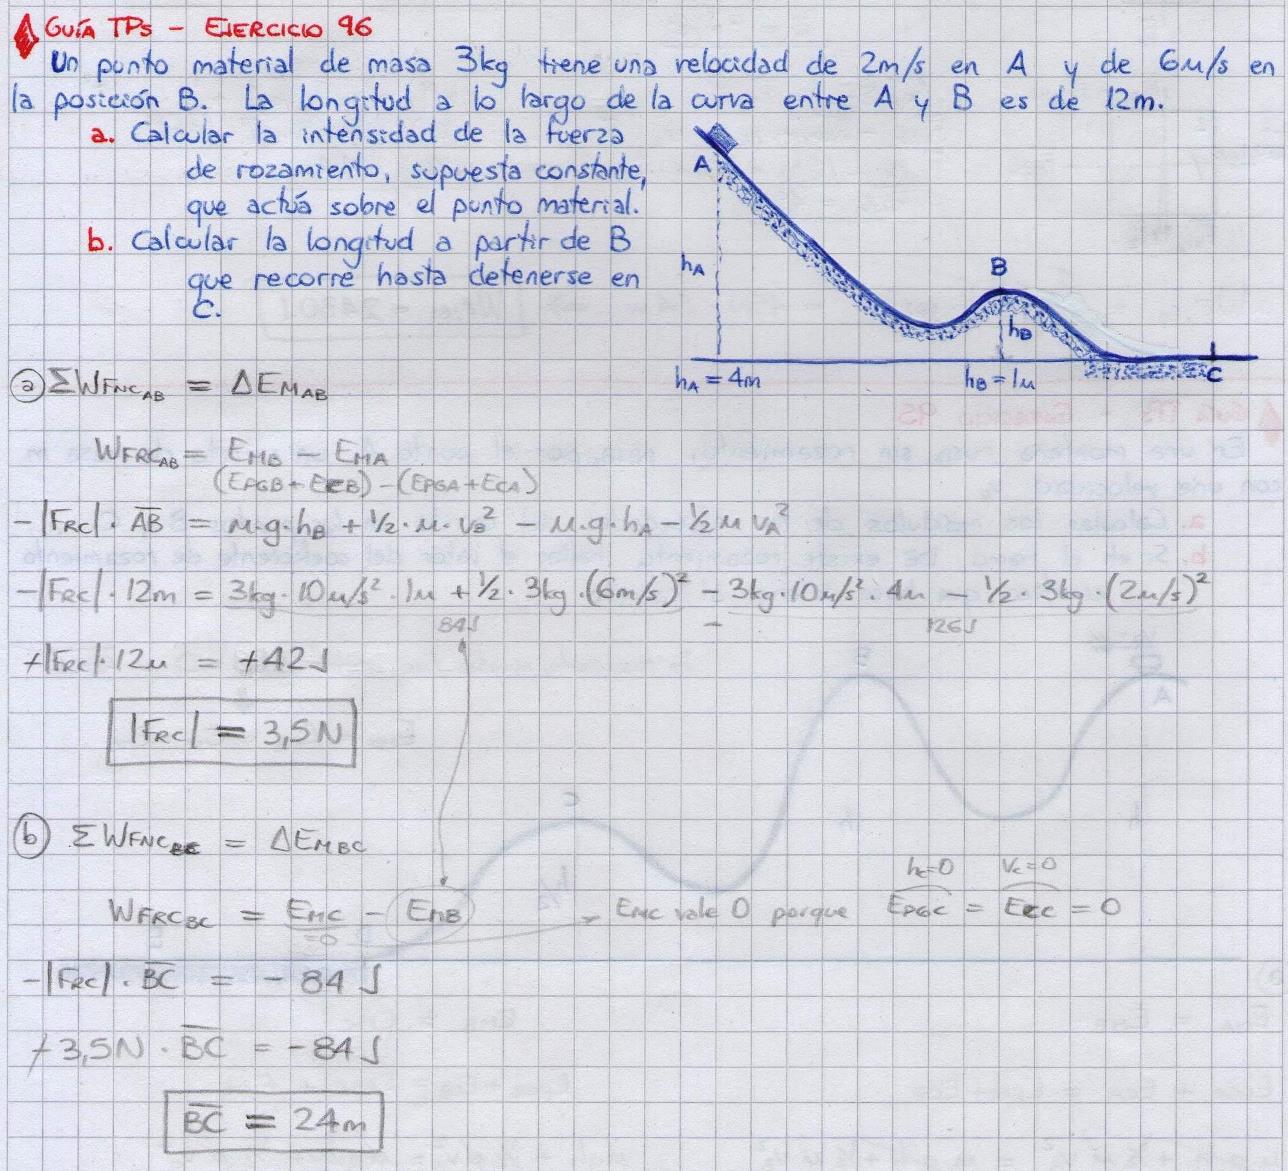 GUÍA TPs - EJERCICIO 96
Un punto material de masa 3kg tiene una velocidad de 2m/s en A y de 6m/s en
la posición B. La longitud a lo largo de la curva entre A y B es de 12m.
a. Calcular la intensidad de la fuerza
de rozamiento, supuesta constante,
que actúa sobre el punto material.
b. Calcular la longitud a partir de B
que recorre hasta detenerse en
C.
A
hA
B
hB
C
hA = 4m
hB = 1m
a ΣWFNCAB = ΔEMAB
WFRCAB = EMB - EMA
(EPGB + ECB) - (EPGA + ECA)
-|FRC| · AB = m·g·hB + 1/2·m·vB² - m·g·hA - 1/2 m vA²
-|FRC| · 12m = 3kg·10m/s²·1m + 1/2·3kg·(6m/s)² - 3kg·10m/s²·4m - 1/2·3kg·(2m/s)²
84J - 126J
+|FRC|·12m = +42J
|FRC| = 3,5N
b ΣWFNCBC = ΔEMBC
hC=0 VC=0
WFRCBC = EMC - EMB EMC vale 0 porque EPGC = ECC = 0
=0
-|FRC| · BC = -84 J
-3,5N · BC = -84 J
BC = 24m